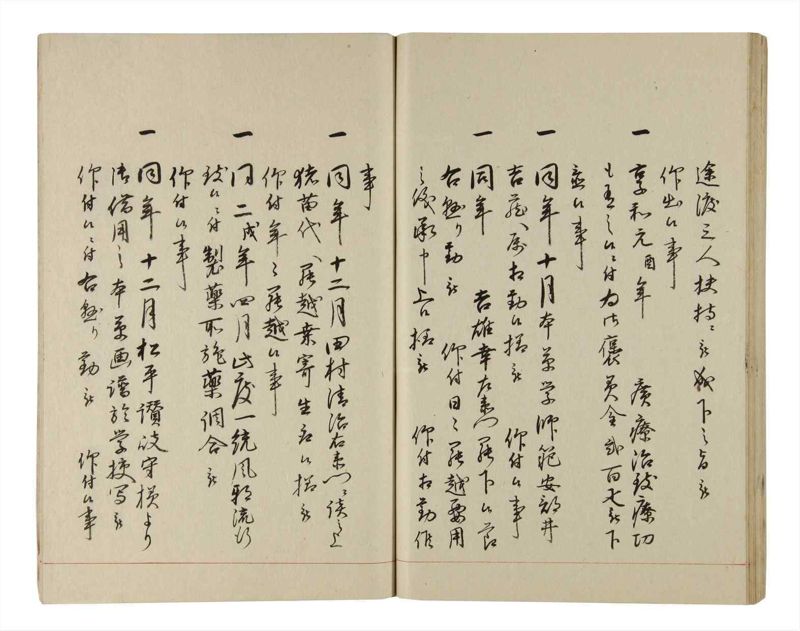 途渡三人扶持被下之旨被
仰出候事
一 享和元酉年 廣療治致療功
も有之候ニ付為御褒美金弐百疋被下
置候事
一 同年十月本草学師範安部井
吉蔵へ属相勤候様被 仰付候事
一 同年 吉雄幸右衛門罷下候節
右懸り勤被 仰付日々罷越要用
之儀承申上候様被 仰付相勤候
事
一 同年十二月田村清治右衛門ニ談之上
猪苗代へ罷越桑寄生取候様被
仰付年々罷越候事
一 同二戌年四月此度一統風邪流行
致候ニ付製薬所施薬調合被
仰付候事
一 同年十二月松平讃岐守様より
御借用之本草画譜於学校写被
仰付候ニ付右懸り勤被 仰付候事